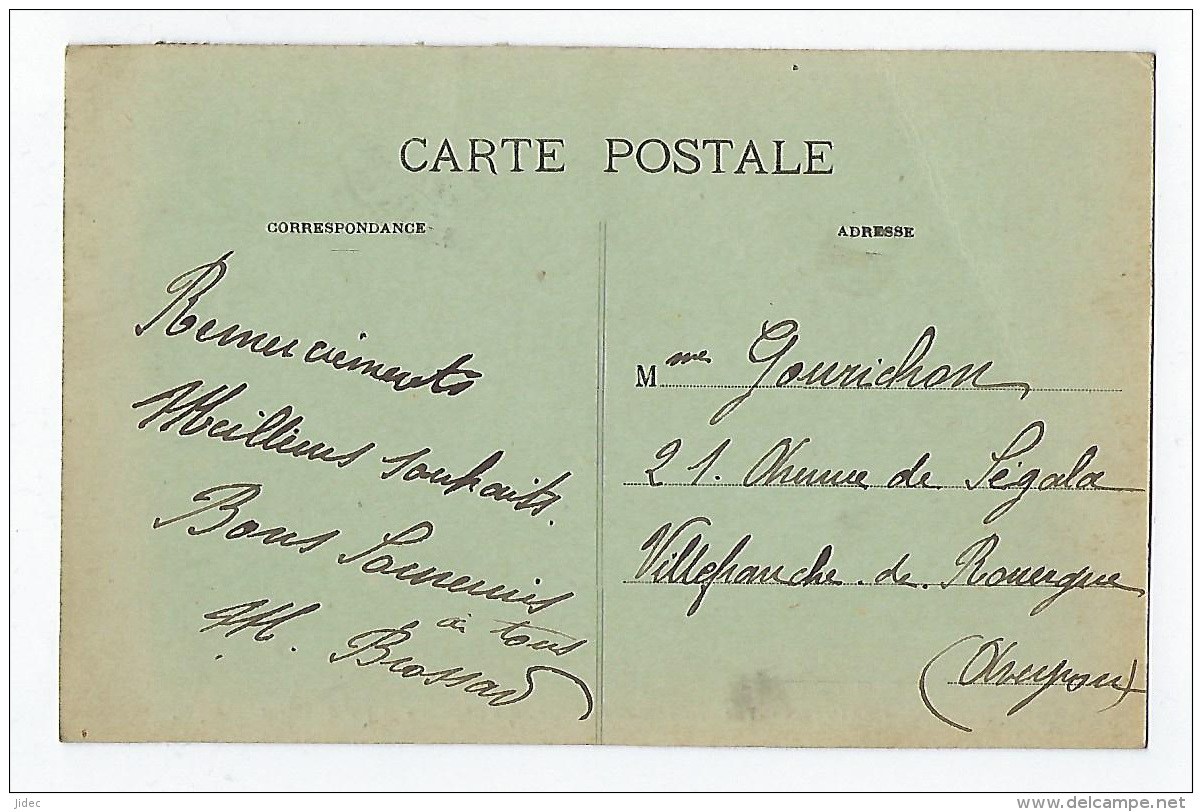 CARTE POSTALE
CORRESPONDANCE
Remerciements
Meilleurs souhaits.
Bons Souvenirs
à tous
M. Brossard
ADRESSE
Mme Gourichon
21. Avenue de Ségala
Villefranche.de.Rouergue
(Aveyron)
Jidec
www.delcampe.net